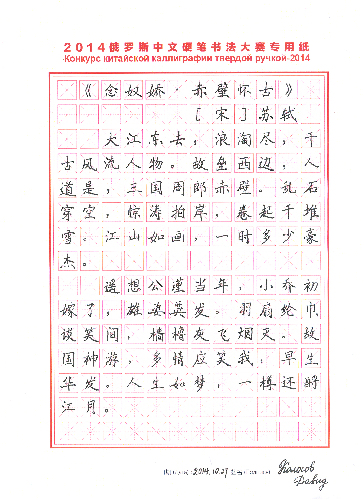 2014俄罗斯中文硬笔书法大赛专用纸
Конкурс китайской каллиграфии твердой ручкой-2014
《念奴娇·赤壁怀古》
[宋]苏轼
大江东去，浪淘尽，千
古风流人物。故垒西边，人
道是，三国周郎赤壁。乱石
穿空，惊涛拍岸，卷起千堆
雪。江山如画，一时多少豪
杰。
遥想公瑾当年，小乔初
嫁了，雄姿英发。羽扇纶巾
谈笑间，樯橹灰飞烟灭。故
国神游，多情应笑我，早生
华发。人生如梦，一樽还酹
江月。
2014.10.29
Колосов
Давид